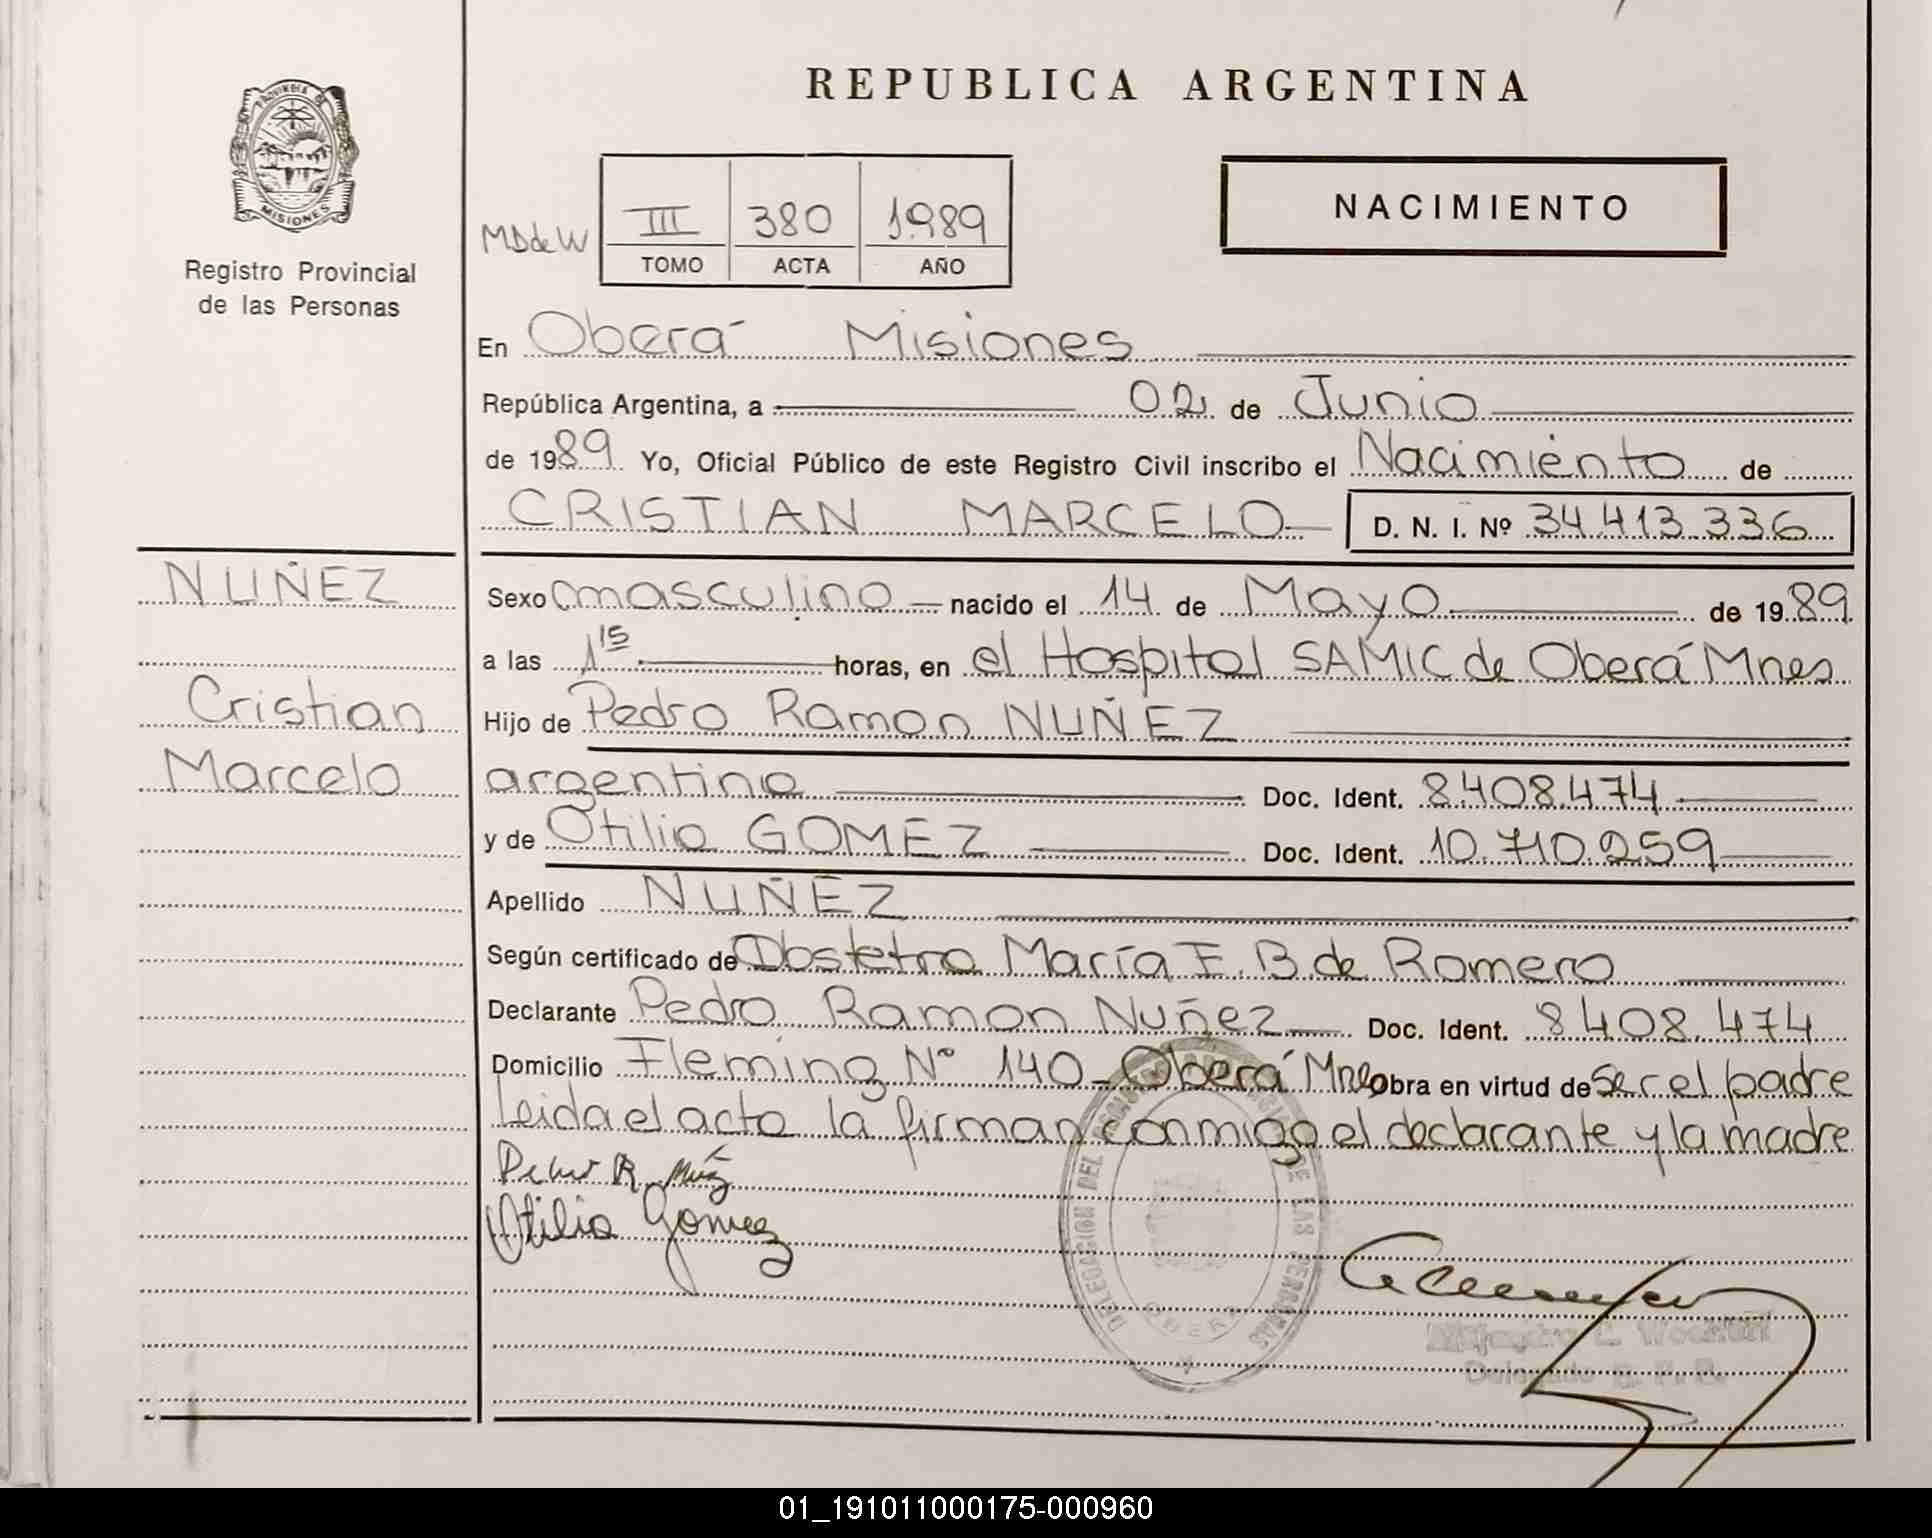 REPUBLICA ARGENTINA
PROVINCIA DE
MISIONES
Registro Provincial
de las Personas
NACIMIENTO
MD de W
III 380 1989
TOMO ACTA AÑO
En Oberá Misiones
República Argentina, a 02 de Junio
de 1989 Yo, Oficial Público de este Registro Civil inscribo el Nacimiento de
CRISTIAN MARCELO D. N. I. Nº 34.413.336
NUÑEZ
Cristian
Marcelo
Sexo masculino nacido el 14 de Mayo de 1989
a las 1 15 horas, en el Hospital SAMIC de Oberá Mnes
Hijo de Pedro Ramon NUÑEZ
argentino Doc. Ident. 8.408.474
y de Otilia GOMEZ Doc. Ident. 10.710.259
Apellido NUÑEZ
Según certificado de Obstetra María E. B de Romero
Declarante Pedro Ramon Nuñez Doc. Ident. 8.408.474
Domicilio Fleming Nº 140 - Oberá Mnes obra en virtud de ser el padre
Leida el acta la firman conmigo el declarante y la madre
Otilia Gomez
DELEGACION DEL REGISTRO PROVINCIAL DE LAS PERSONAS
OBERA
Delegado R. P. P.
01_191011000175-000960